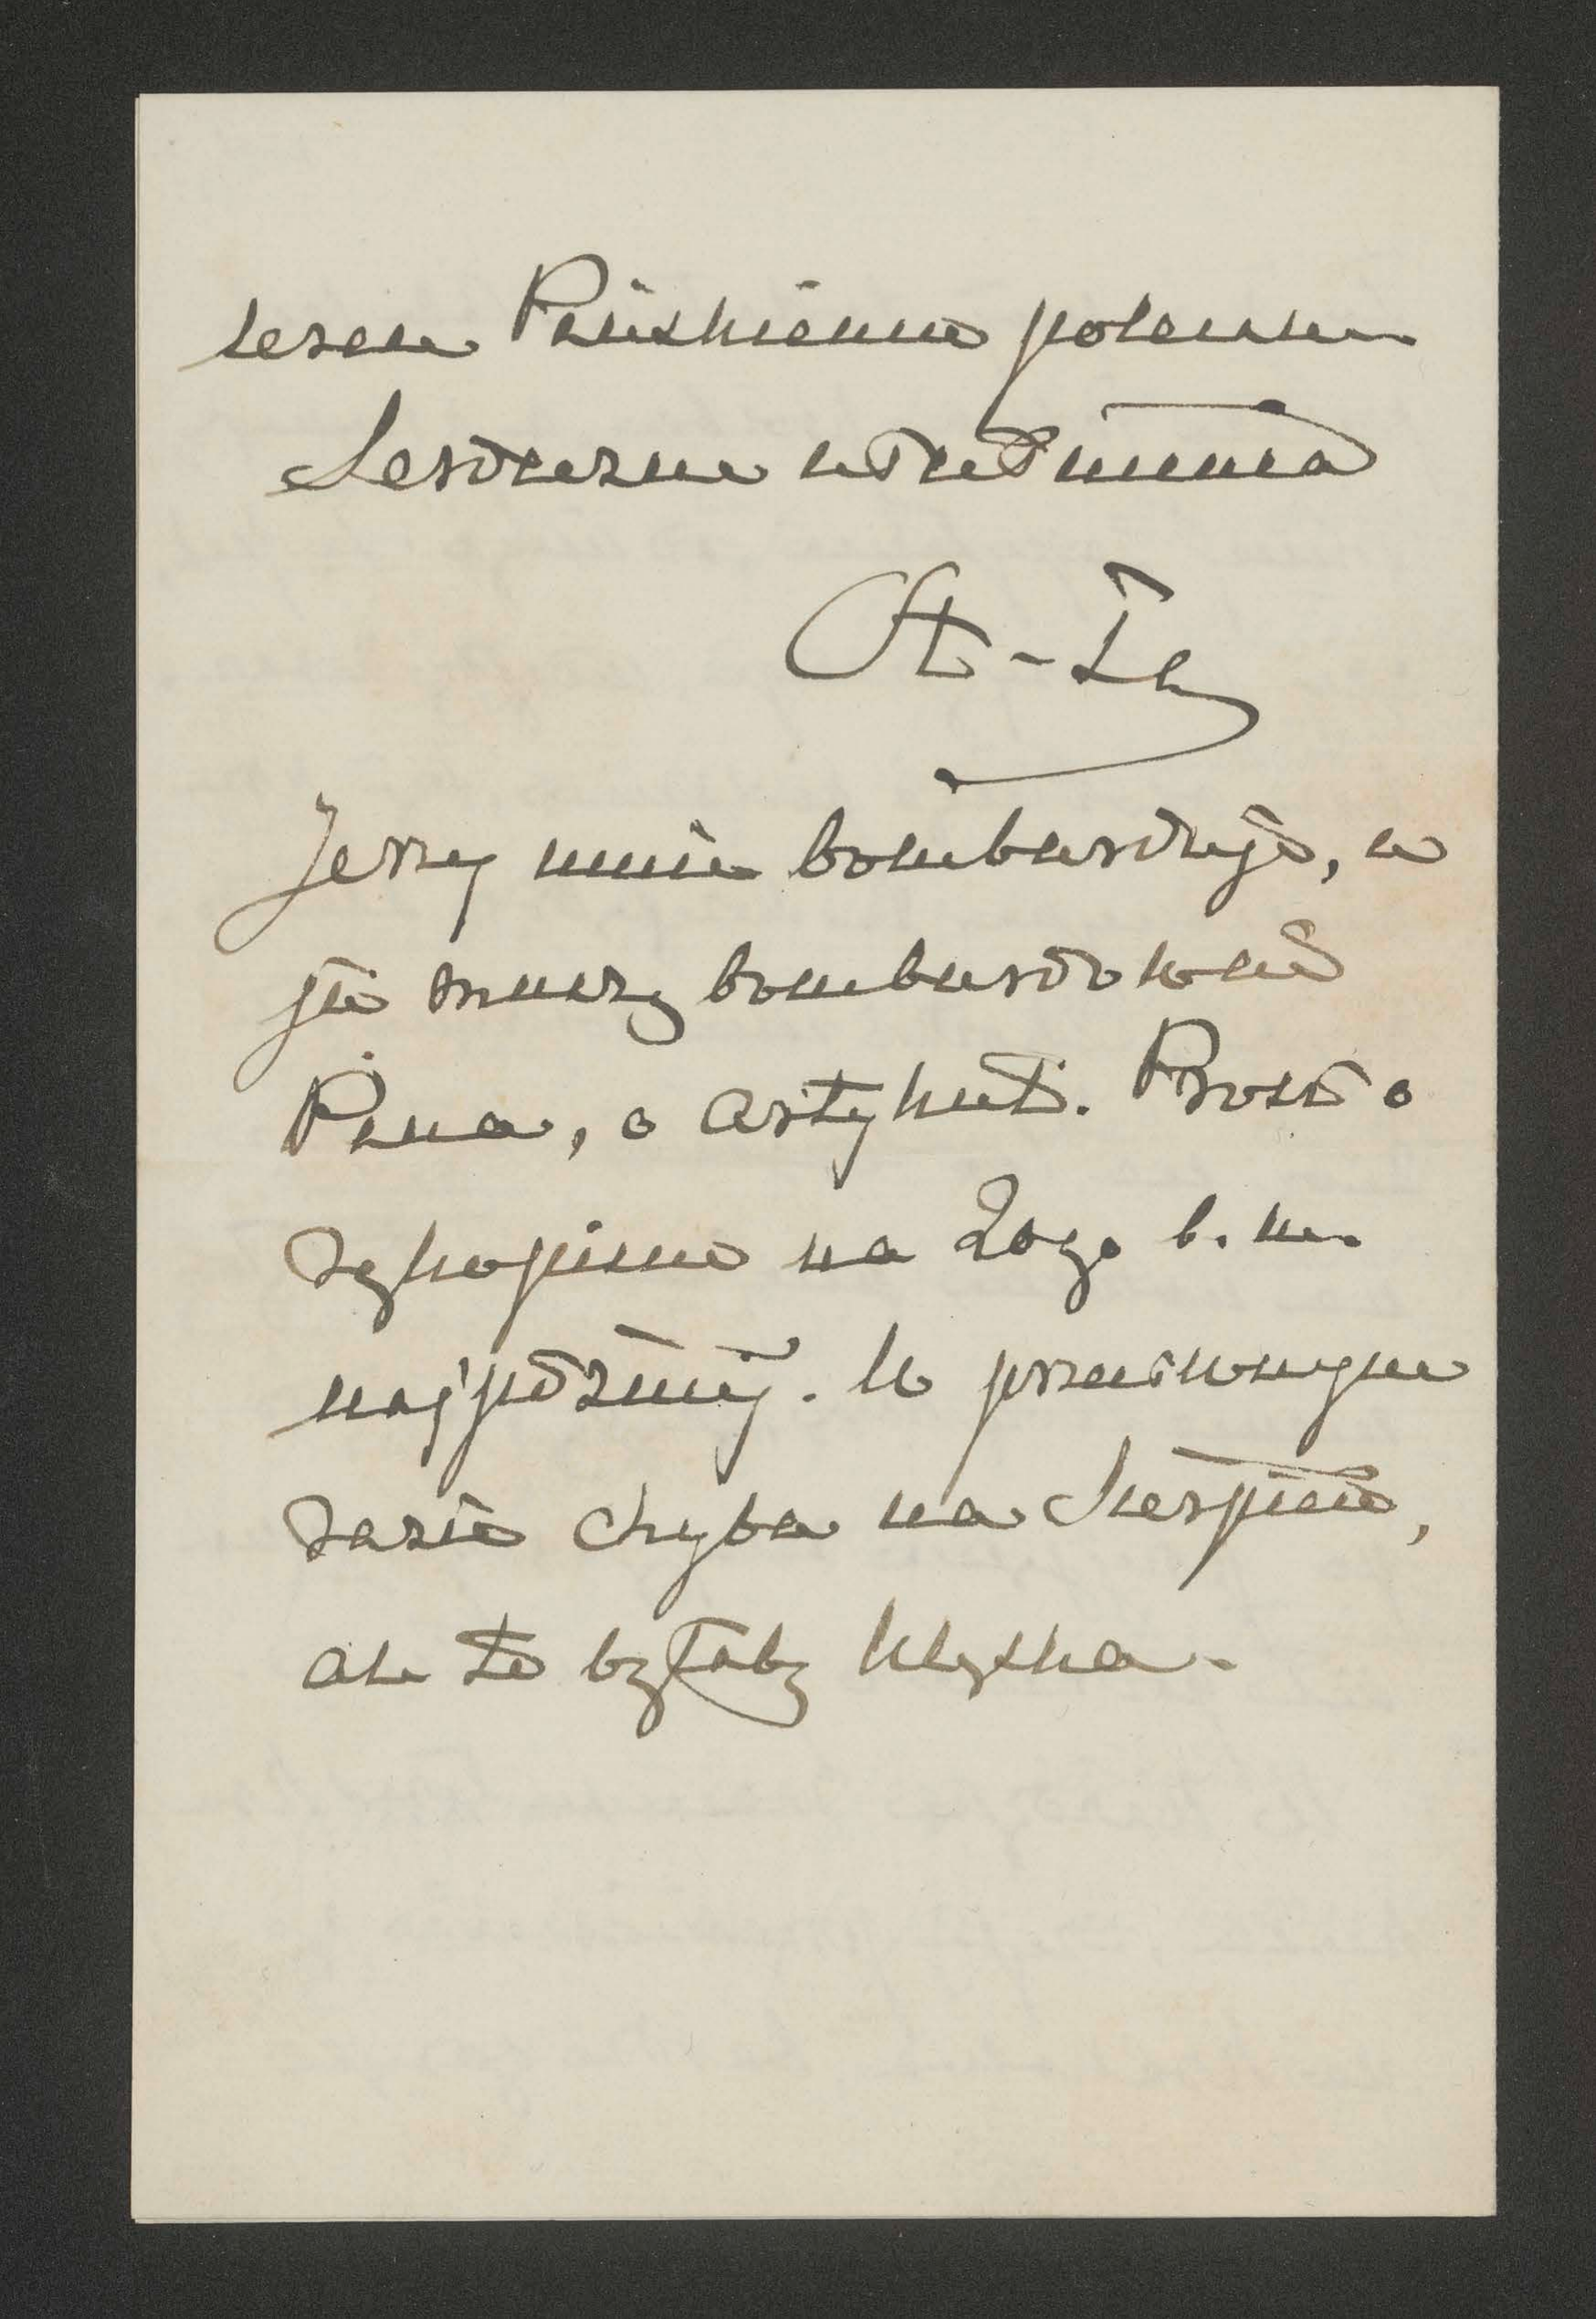 sercu Pańskiemu polecam
Serdeczne uściśnienia
St-Le
Jerzy mnie bombarduje, a
ja muszę bombardować
Pana, o artykuł. Proszę o
rękopism na 20go b. m.
najpóźniej. W przeciwnym
razie chyba na Sierpień,
ale to byłaby klęska.